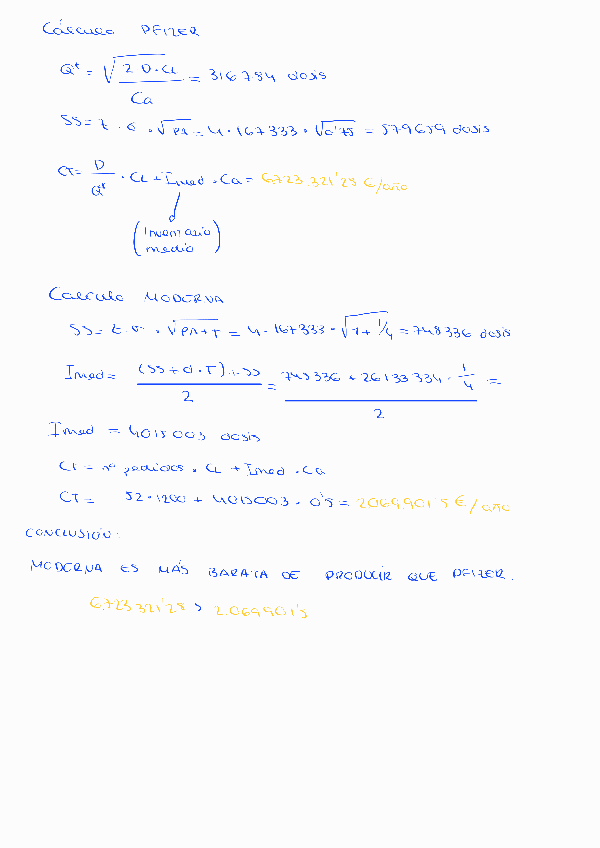 Cálculo PFIZER
Q* = √(2·D·CL / Ca) = 316784 dosis
SS = z · σ · √PA = 4 · 167333 · √0'75 = 579659 dosis
CT = D/Q* · CL + Imed · Ca = 6723.321'28 €/año
(Inventario medio)
Calculo MODERNA
SS = z · σ · √PA+T = 4 · 167333 · √1+1/4 = 748336 dosis
Imed = (SS + d · T) + SS / 2 = 748336 + 26133334 · 1/4 / 2 =
Imed = 4015003 dosis
CT = nº pedidos · CL + Imed · Ca
CT = 52 · 1200 + 4015003 · 0'5 = 2069901'5 €/año
CONCLUSIÓN:
MODERNA ES MÁS BARATA DE PRODUCIR QUE PFIZER.
6.723.321'28 > 2.069.901'5